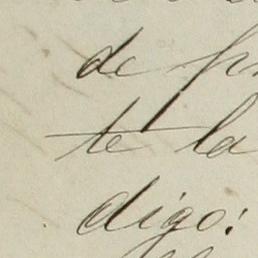 de
te la
digo: